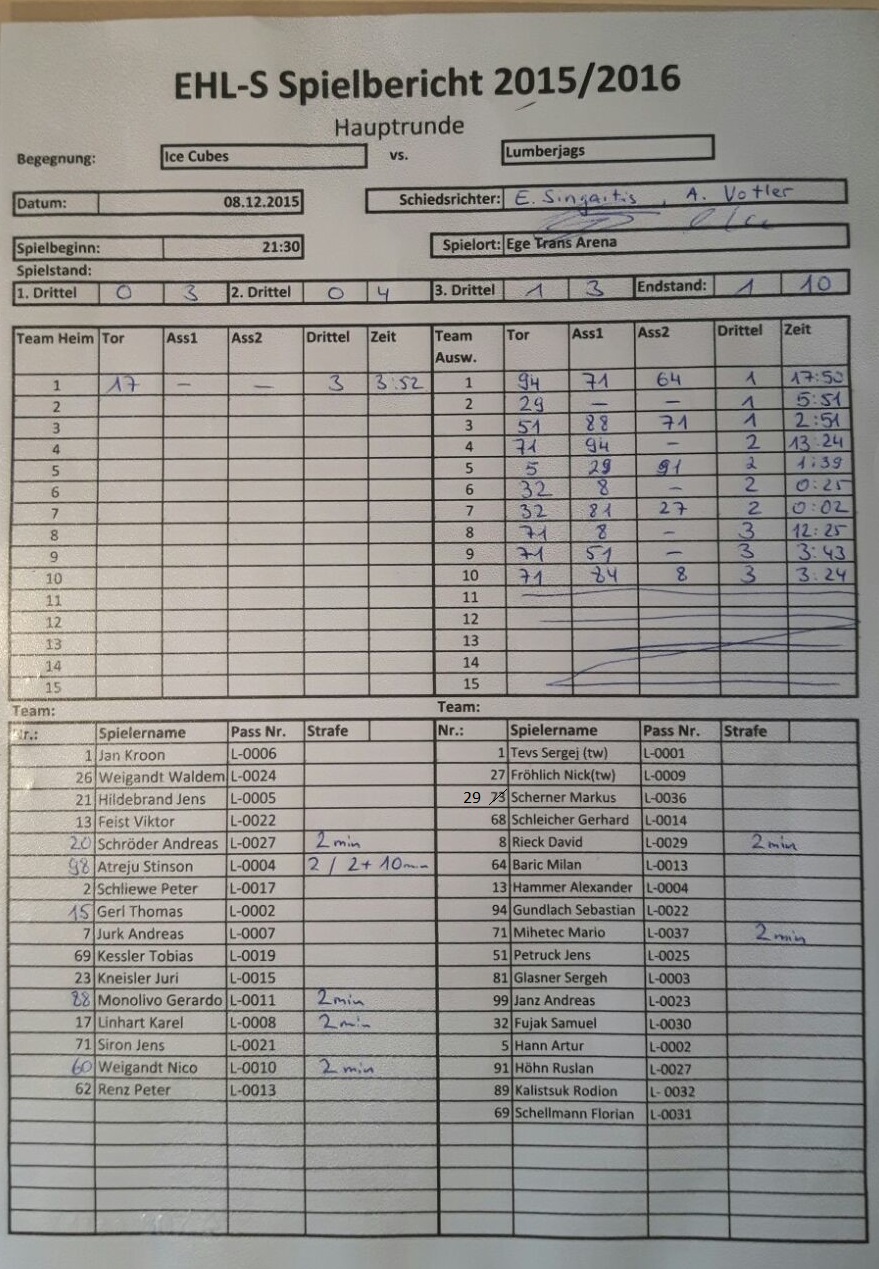 EHL-S Spielbericht 2015/2016
Hauptrunde
Begegnung: Ice Cubes vs. Lumberjags
Datum: 08.12.2015 Schiedsrichter: E. Singaitis, A. Votler
Spielbeginn: 21:30 Spielort: Ege Trans Arena
Spielstand:
1. Drittel 0 3 2. Drittel 0 4 3. Drittel 1 3 Endstand: 1 10
Team Heim Tor Ass1 Ass2 Drittel Zeit Team Ausw. Tor Ass1 Ass2 Drittel Zeit
1 17 – – 3 3:52 1 94 71 64 1 17:50
2 2 29 – – 1 5:51
3 3 51 88 71 1 2:51
4 4 71 94 – 2 13:24
5 5 5 29 91 2 1:39
6 6 32 8 – 2 0:25
7 7 32 81 27 2 0:02
8 8 71 8 – 3 12:25
9 9 71 51 – 3 3:43
10 10 71 84 8 3 3:24
11 11
12 12
13 13
14 14
15 15
Team: Team:
Nr.: Spielername Pass Nr. Strafe Nr.: Spielername Pass Nr. Strafe
1 Jan Kroon L-0006 1 Tevs Sergej (tw) L-0001
26 Weigandt Waldem L-0024 27 Fröhlich Nick(tw) L-0009
21 Hildebrand Jens L-0005 29 73 Scherner Markus L-0036
13 Feist Viktor L-0022 68 Schleicher Gerhard L-0014
20 Schröder Andreas L-0027 2 min 8 Rieck David L-0029 2 min
98 Atreju Stinson L-0004 2 / 2+10min 64 Baric Milan L-0013
2 Schliewe Peter L-0017 13 Hammer Alexander L-0004
15 Gerl Thomas L-0002 94 Gundlach Sebastian L-0022
7 Jurk Andreas L-0007 71 Mihetec Mario L-0037 2 min
69 Kessler Tobias L-0019 51 Petruck Jens L-0025
23 Kneisler Juri L-0015 81 Glasner Sergeh L-0003
88 Monolivo Gerardo L-0011 2 min 99 Janz Andreas L-0023
17 Linhart Karel L-0008 2 min 32 Fujak Samuel L-0030
71 Siron Jens L-0021 5 Hann Artur L-0002
60 Weigandt Nico L-0010 2 min 91 Höhn Ruslan L-0027
62 Renz Peter L-0013 89 Kalistsuk Rodion L- 0032
69 Schellmann Florian L-0031